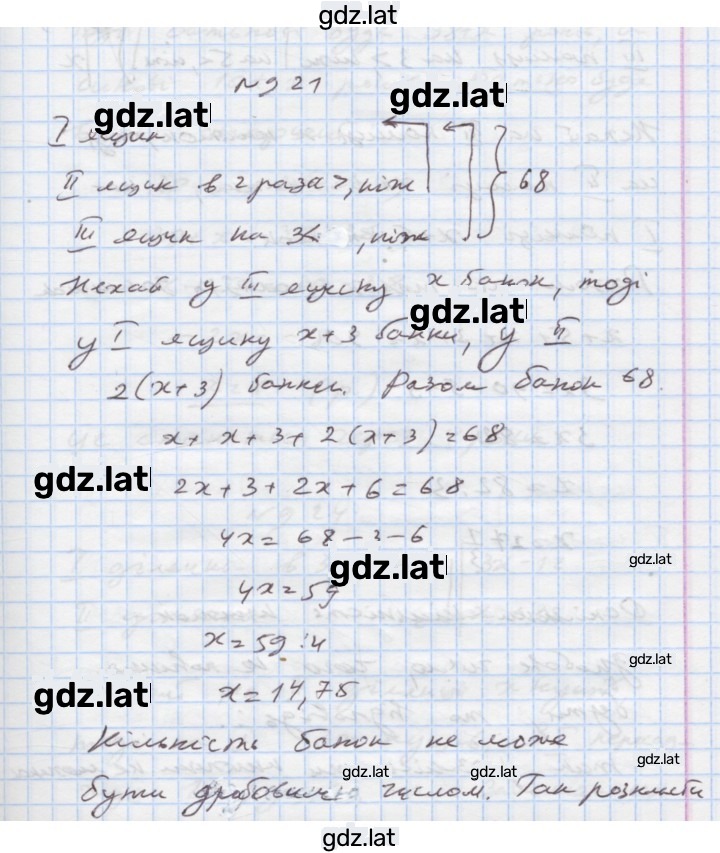 gdz.lat
№921
gdz.lat
gdz.lat
I ящик
II ящик в 2 раза >, ніж
68
III ящик на 3<, ніж
Нехай у III ящику x банок, тоді
gdz.lat
у I ящику x+3 банки, у II
2(x+3) банки. Разом банок 68.
x+x+3+2(x+3)=68
gdz.lat
2x+3+2x+6=68
4x=68-3-6
gdz.lat
gdz.lat
4x=59
x=59:4
gdz.lat
gdz.lat
x=14,75
Кількість банок не може
gdz.lat
gdz.lat
gdz.lat
бути дробовим числом. Так розкласти
gdz.lat